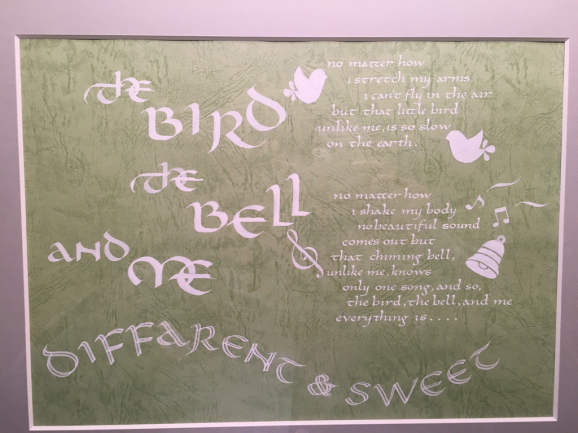 the
BIRD
the
BELL
AND
ME
no matter how
i stretch my arms,
i can't fly in the air
but that little bird
unlike me, is so slow
on the earth.
no matter how
i shake my body
no beautiful sound
comes out but
that chiming bell,
unlike me, knows
only one song, and so,
the bird, the bell, and me
everything is....
DIFFARENT & SWEET